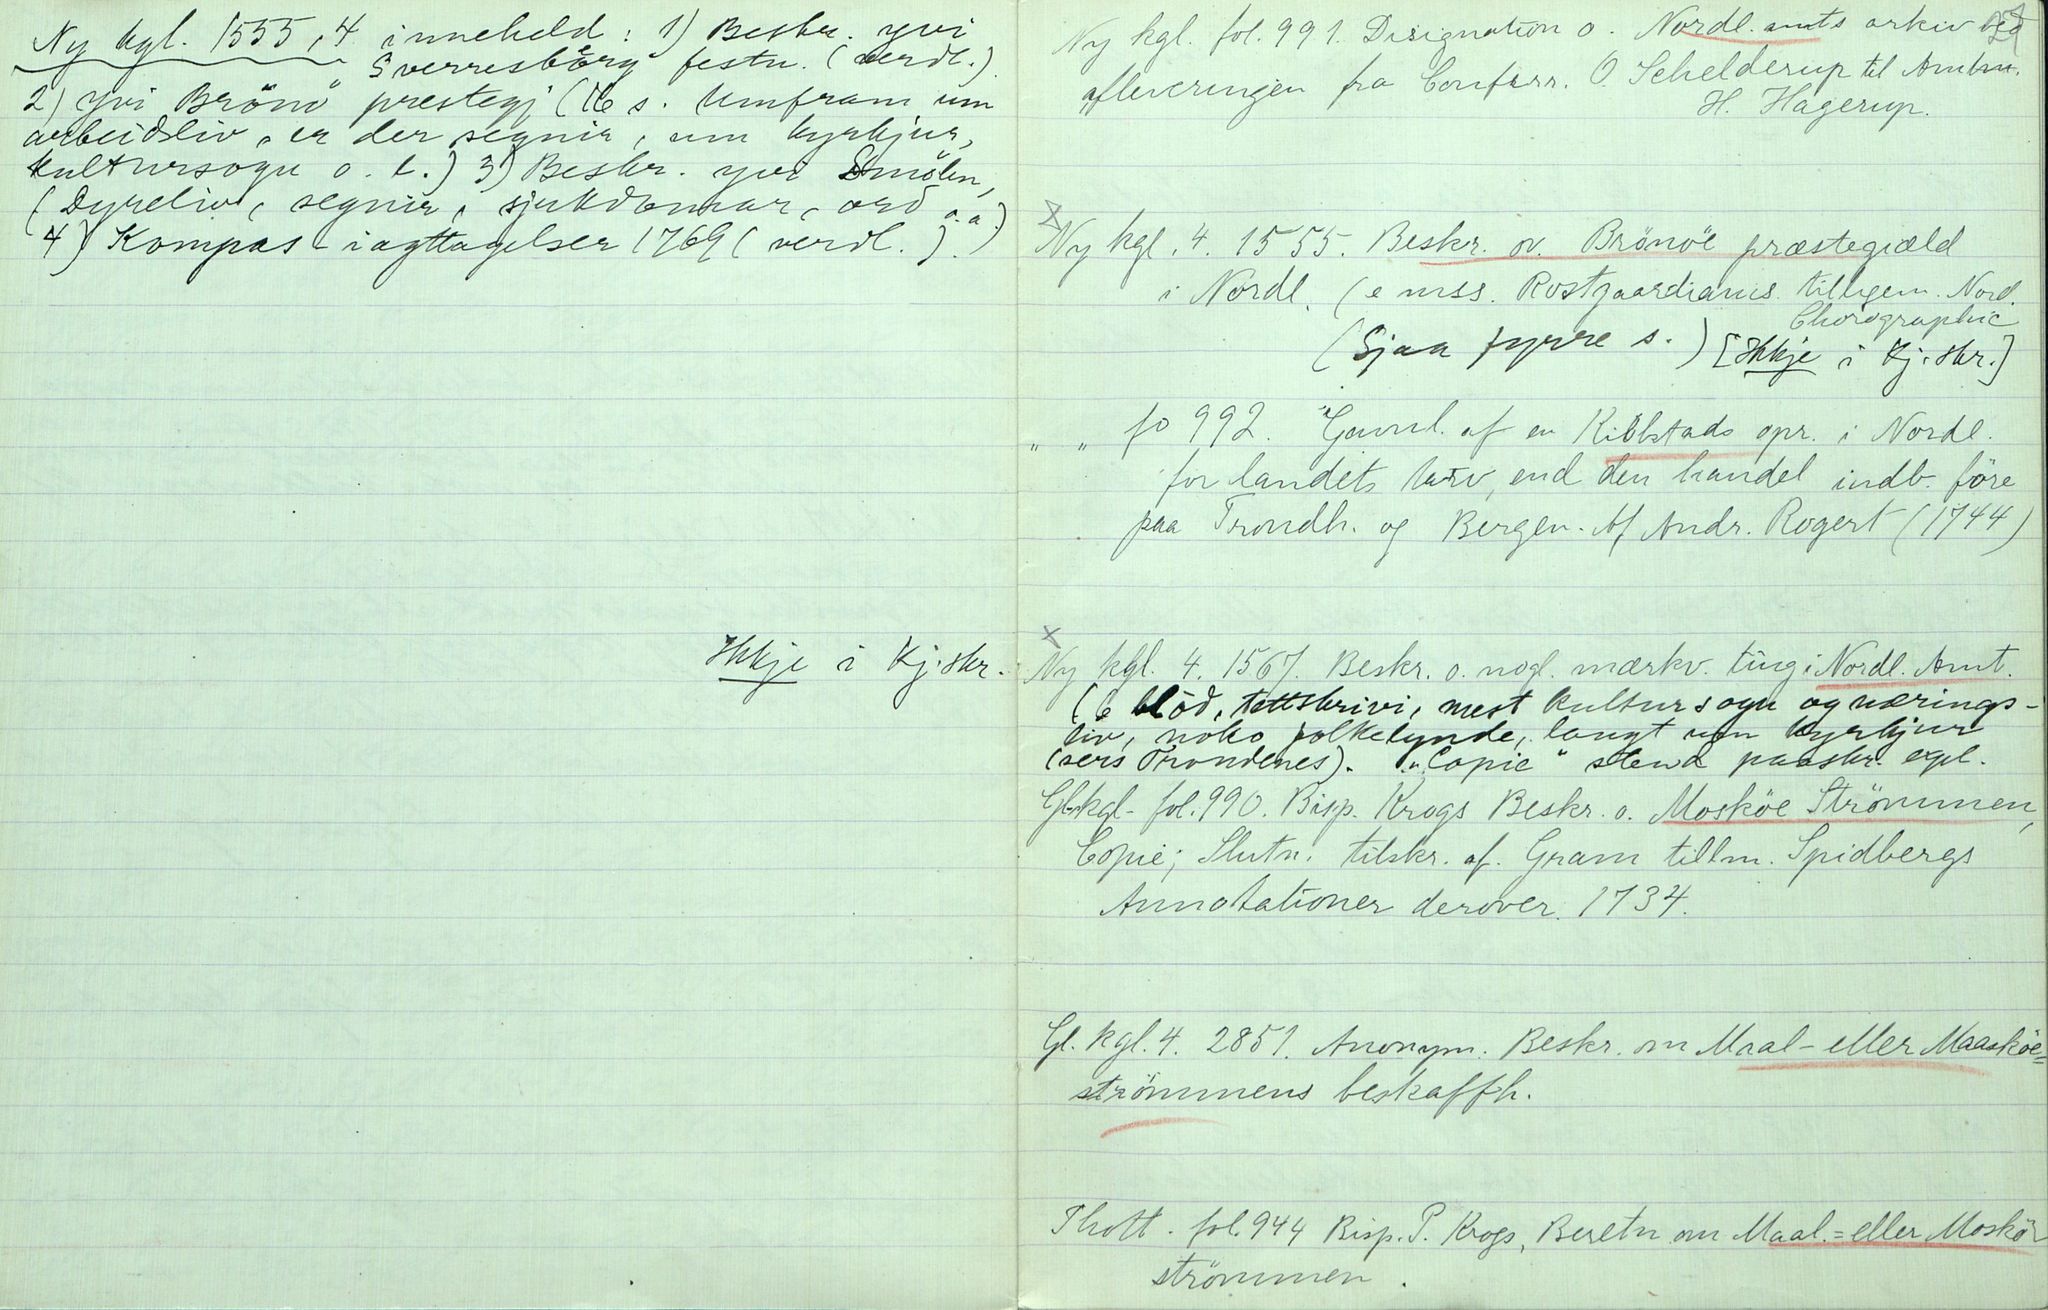 Ny kgl. 1555, 4 inneheld: 1) Beskr. yvi
"Sverresborg" festn. (verdl.).
2) yvi Brönö prestegj (16 s. Umfram um
arbeidsliv, er der segnir, um kyrkjur,
kultursogu o. l.) 3) Beskr. yvi Smölen,
(Dyreliv, segnir, sjukdomar, ord o.a.)
4) Kompas-iagttagelser 1769 (verdl.).
Ikkje i Kj.skr.
Ny kgl. fol. 991. Disignation o. Nordl. amts arkiv ved
afleveringen fra Conferr. O. Schelderup til Amtm.
H. Hagerup.
x
Ny kgl. 4. 1555. Beskr. ov. Brönöe præstegiæld
i Nordl. (e mss. Rostgaardianis tilligem. Nord.
Chorographie
(Sjaa fyrre s.) [Ikkje i Kj.skr.]
" " fo 992. Gavnl. af en Kiöbstads opr. i Nordl.
for landets tarv, end den handel indb. före
paa Trondh. og Bergen. Af Andr. Rogert (1744)
x
Ny kgl. 4. 1567. Beskr. o. nogl. mærkv. ting i Nordl. Amt.
(6 blöd, tettskrivi, mest kultursogu og nærings-
liv, noko folkelynde, langt um kyrkjur
(sers Trondenes). "Copie" stend paaskr. expl.
Gl. kgl. fol. 990. Bisp. Krogs Beskr. o. Mosköe Strömmen,
Copie; Slutn. tilskr. af. Gram tillm. Spidbergs
Annotationer derover. 1734.
Gl. kgl. 4. 2851. Anonym. Beskr. om Maal- eller Maasköe=
strömmens beskaffh.
Thott. fol. 944 Bisp. P. Krogs, Beretn om Maal.=eller Mosköe
strömmen.